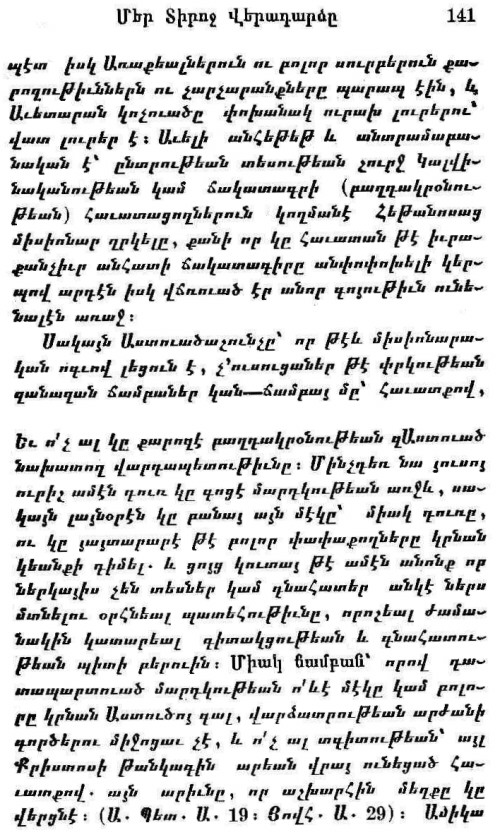 Մեր Տիրոջ Վերադարձը 141
պէտ իսկ Առաքեալներուն ու բոլոր սուրբերուն քա-
րոզութիւններն ու չարչարանքները պարապ էին, և
Աւետարան կոչուածը փոխանակ ուրախ լուրերու՝
վատ լուրեր է։ Աւելի անհեթեթ և անտրամաբա-
նական է՝ ընտրութեան տեսութեան շուրջ Կալվի-
նականութեան կամ ճակատագրի (բաղդակրօնու-
թեան) Հաւատացողներուն կողմանէ Հեթանոսաց
միսիոնար ղրկելը, քանի որ կը Հաւատան թէ իւրա-
քանչիւր անհատի ճակատագիրը անփոփոխելի կեր-
պով արդէն իսկ վճռուած էր անոր գոյութիւն ունե-
նալէն առաջ։
Սակայն Աստուածաշունչը՝ որ թէև միսիոնարա-
կան ոգւով լեցուն է, չ՚ուսուցաներ թէ փրկութեան
զանազան ճամբաներ կան—ճամբայ մը՝ Հաւատքով,
Եւ ո՛չ ալ կը քարոզէ բաղդակրօնութեան զԱստուած
նախատող վարդապետութիւնը։ Մինչդեռ նա յուսոյ
ուրիշ ամէն դուռ կը գոցէ մարդկութեան առջև, սա-
կայն լայնօրէն կը բանայ այն մէկը՝ միակ դուռը,
ու կը յայտարարէ թէ բոլոր փափաքողները կրնան
կեանքի դիմել. և ցոյց կուտայ թէ ամէն անոնք որ
ներկայիս չեն տեսներ կամ գնահատեր անկէ ներս
մտնելու օրհնեալ պատեհութիւնը, որոշեալ ժամա-
նակին կատարեալ գիտակցութեան և գնահատու-
թեան պիտի բերուին։ Միակ ճամբան՝ որով դա-
տապարտուած մարդկութեան ո՛ևէ մէկը կամ բոլո-
րը կրնան Աստուծոյ գալ, վարձատրութեան արժանի
գործերու միջոցաւ չէ, և ո՛չ ալ տգիտութեան՝ այլ
Քրիստոսի թանկագին արեան վրայ ունեցած Հա-
ւատքով. այն արիւնը, որ աշխարհին մեղքը կը
վերցնէ։ (Ա. Պետ. Ա. 19։ Յովհ. Ա. 29)։ Ասիկա